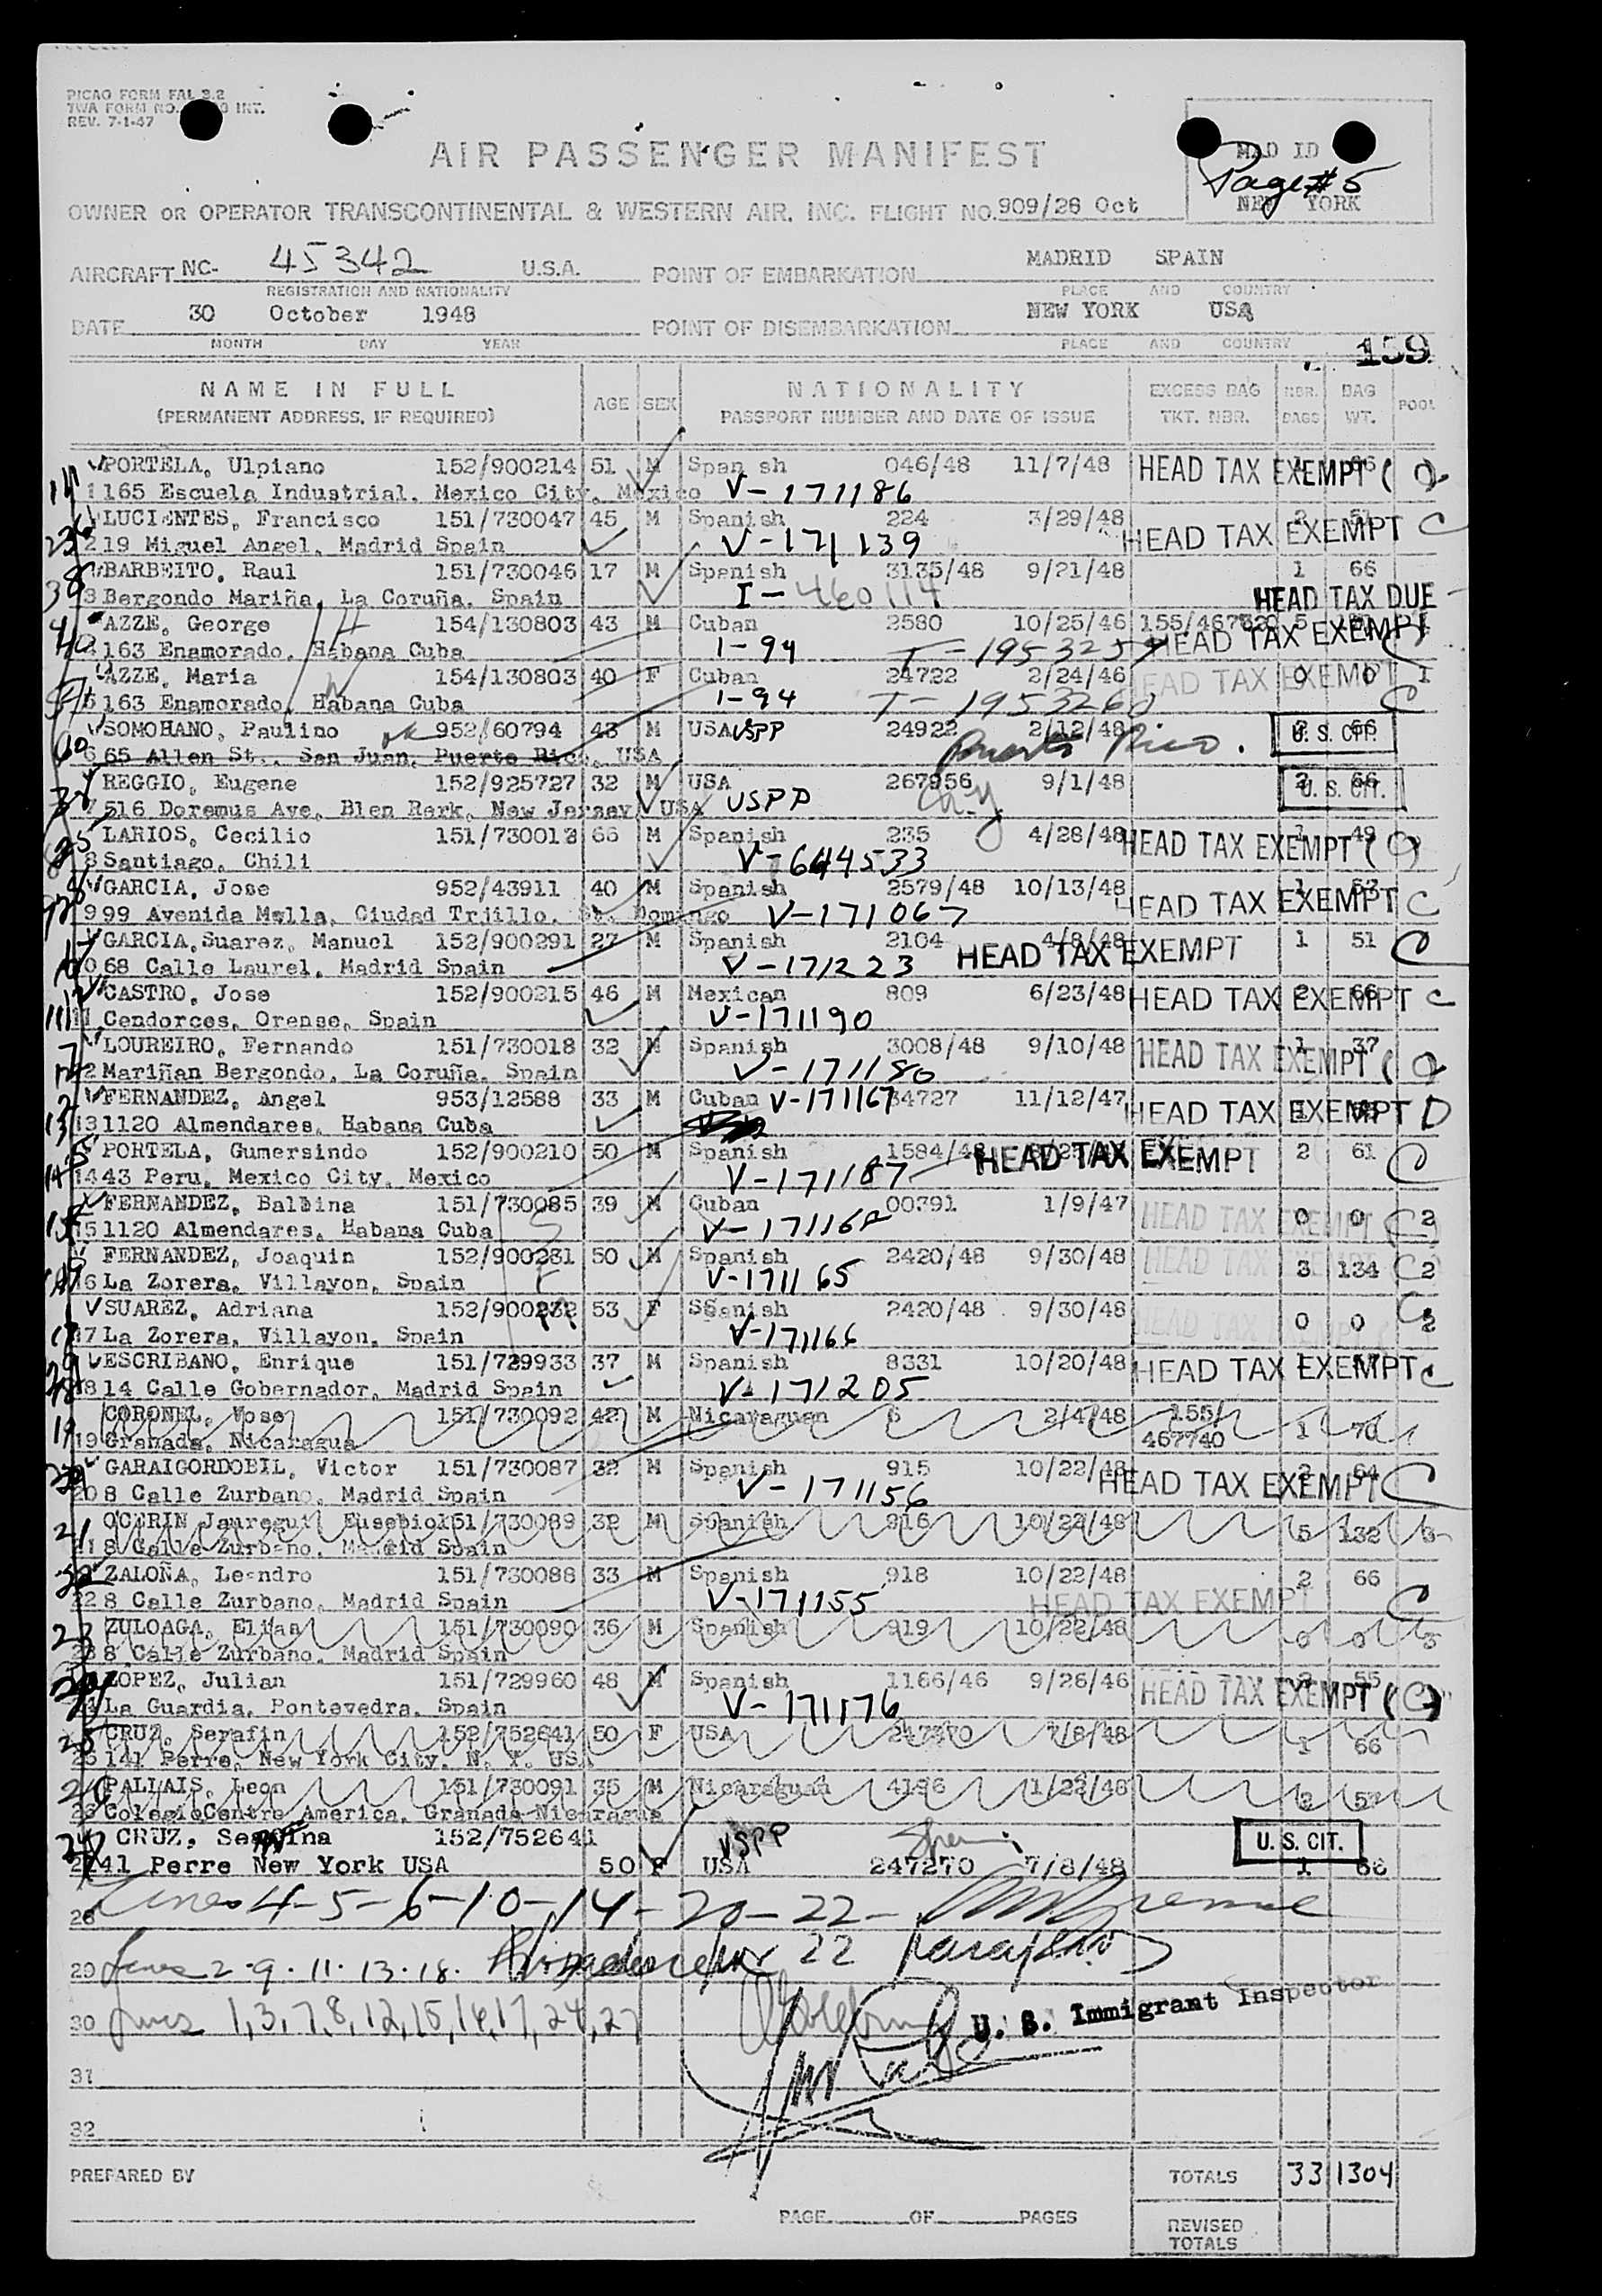 PICAO FORM FAL 3.2
TWA FORM NO. INT.
REV. 7-1-47
AIR PASSENGER MANIFEST
MAD ID
Page # 5
NEW YORK
OWNER OR OPERATOR TRANSCONTINENTAL & WESTERN AIR, INC. FLIGHT NO. 909/28 Oct
AIRCRAFT NC- 45342 U.S.A. POINT OF EMBARKATION MADRID SPAIN
REGISTRATION AND NATIONALITY PLACE AND COUNTRY
DATE 30 October 1948 POINT OF DISEMBARKATION NEW YORK USA
MONTH DAY YEAR PLACE AND COUNTRY
159
NAME IN FULL AGE SEX NATIONALITY EXCESS BAG NBR. BAG POOL
(PERMANENT ADDRESS, IF REQUIRED) PASSPORT NUMBER AND DATE OF ISSUE TKT. NBR. BAGS WT.
PORTELA, Ulpiano 152/900214 51 M Span sh 046/48 11/7/48 HEAD TAX EXEMPT
1 165 Escuela Industrial. Mexico City. Mexico V-171186
LUCIENTES, Francisco 151/730047 45 M Spanish 224 3/29/48 2 51
2 19 Miguel Angel. Madrid Spain V-171139 HEAD TAX EXEMPT C
BARBEITO, Raul 151/730046 17 M Spanish 3135/48 9/21/48 1 66
3 Bergondo Mariña, La Coruña. Spain I-460114 HEAD TAX DUE
AZZE, George 154/130803 43 M Cuban 2580 10/25/46 155/467720 5
163 Enamorado, Habana Cuba 1-94 T-1953259 HEAD TAX EXEMPT
AZZE, Maria 154/130803 40 F Cuban 24722 2/24/46 0 0 1
5 163 Enamorado, Habana Cuba 1-94 T-1953260 HEAD TAX EXEMPT C
SOMOHANO, Paulino ok 952/60794 43 M USA USPP 24922 2/12/48 66 U. S. CIT.
6 65 Allen St., San Juan, Puerto Rico, USA Puerto Rico.
REGGIO, Eugene 152/925727 32 M USA 267956 9/1/48 2 66
7 516 Doremus Ave, Blen Rerk, New Jersey USA USPP U. S. CIT.
LARIOS, Cecilio 151/730013 66 M Spanish 235 4/28/48 49 HEAD TAX EXEMPT
8 Santiago, Chili V-644533
GARCIA, Jose 952/43911 40 M Spanish 2579/48 10/13/48 1 53
9 99 Avenida Mella, Ciudad Trjillo, St. Domingo V-171067 HEAD TAX EXEMPT C
GARCIA,Suarez, Manuel 152/900291 27 M Spanish 2104 4/8/48 1 51
10 68 Calle Laurel, Madrid Spain V-171223 HEAD TAX EXEMPT C
CASTRO, Jose 152/900215 46 M Mexican 809 6/23/48 2 66 HEAD TAX EXEMPT C
11 Cendorces, Orense, Spain V-171190
LOUREIRO, Fernando 151/730018 32 M Spanish 3008/48 9/10/48 1 37
12 Mariñan Bergondo, La Coruña, Spain V-171180 HEAD TAX EXEMPT
FERNANDEZ, Angel 953/12588 33 M Cuban V-171167 34727 11/12/47 HEAD TAX EXEMPT D
13 1120 Almendares, Habana Cuba
PORTELA, Gumersindo 152/900210 50 M Spanish 1584/48 HEAD TAX EXEMPT 2 61 C
14 43 Peru, Mexico City, Mexico V-171187
FERNANDEZ, Balbina 151/730085 39 M Cuban 00391 1/9/47 HEAD TAX EXEMPT 0 0 2
15 1120 Almendares, Habana Cuba V-171168
FERNANDEZ, Joaquin 152/900231 50 M Spanish 2420/48 9/30/48 HEAD TAX EXEMPT 3 134 2
16 La Zorera, Villayon, Spain V-171165
SUAREZ, Adriana 152/900232 53 F Spanish 2420/48 9/30/48 HEAD TAX EXEMPT 0 0 2
17 La Zorera, Villayon, Spain V-171166
ESCRIBANO, Enrique 151/729933 37 M Spanish 8331 10/20/48 HEAD TAX EXEMPT C
18 14 Calle Gobernador, Madrid Spain V-171205
CORONEL, Vose 151/730092 42 M Nicaraguan 6 2/4/48 155/ 1 70
19 Granada, Nicaragua 467740
GARAIGORDOBIL, Victor 151/730087 32 M Spanish 915 10/22/48 2 64
20 8 Calle Zurbano, Madrid Spain V-171156 HEAD TAX EXEMPT C
OCERIN Jauregui Eusebio 151/730089 32 M Spanish 916 10/22/48 5 132 3
21 8 Calle Zurbano, Madrid Spain
ZALOÑA, Leandro 151/730088 33 M Spanish 918 10/22/48 2 66
22 8 Calle Zurbano, Madrid Spain V-171155 HEAD TAX EXEMPT C
ZULOAGA, Elias 151/730090 36 M Spanish 919 10/22/48 0 0 3
23 8 Calle Zurbano, Madrid Spain
LOPEZ, Julian 151/729960 48 M Spanish 1166/46 9/26/46 2 55
24 La Guardia, Pontevedra, Spain V-171176 HEAD TAX EXEMPT (C)
CRUZ, Serafin 152/752641 50 F USA 247270 7/8/48 1 66
25 141 Perre, New York City, N. Y. USA
PALLAIS, Leon 151/730091 35 M Nicaraguan 4196 1/22/48 2 57
26 Colegio Centre America, Granada Nicaragua
CRUZ, Serafina 152/752641 USPP U. S. CIT.
27 41 Perre New York USA 50 F USA 247270 7/8/48 1 66
28 Lines 4-5-6-10-14-20-22-
29 Lines 2.9.11.13.18. 22
30 Lines 1,3,7,8,12,15,16,17,24,27 U. S. Immigrant Inspector
31
32
PREPARED BY TOTALS 33 1304
PAGE OF PAGES REVISED TOTALS